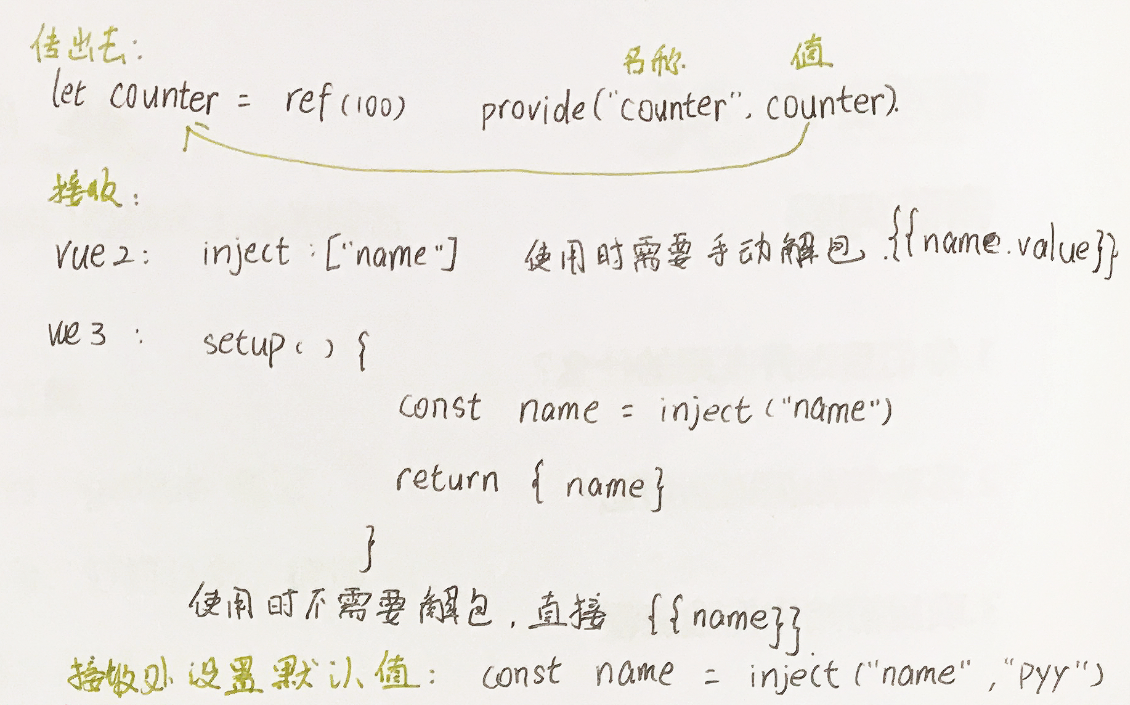 传出去:
名称. 值
let counter = ref(100) provide("counter", counter).
接收:
vue2: inject :["name"] 使用时需要手动解包.{{name.value}}
vue3 : setup() {
const name = inject("name")
return { name}
}
使用时不需要解包,直接 {{name}}.
接收处设置默认值: const name = inject("name","pyy")